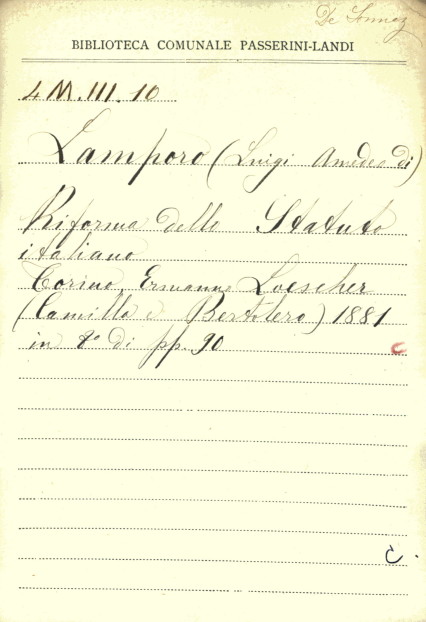 De Sonnaz
BIBLIOTECA COMUNALE PASSERINI-LANDI
4 M. III. 10
Lamporo (Luigi Amedeo di)
Riforma dello Statuto
italiano
Torino, Ermanno Loescher
(Camilla e Bertolero) 1881
in 8° di pp. 90
C
C.